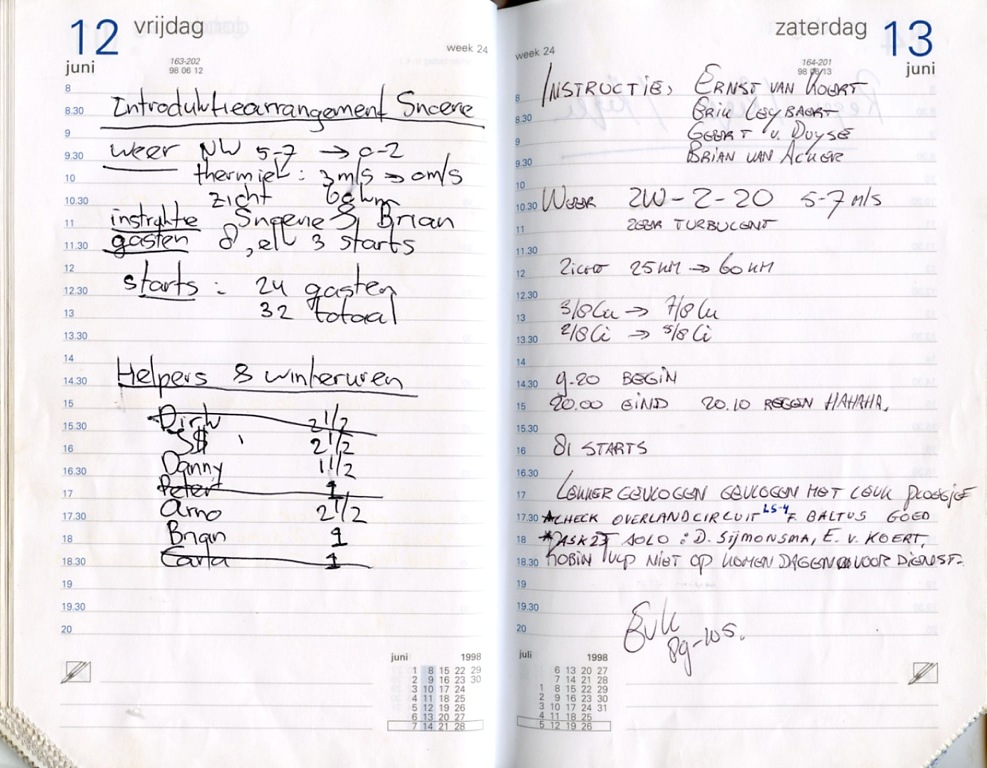 12 vrijdag
juni
163-202
98 06 12
week 24
8
8.30 Introduktiearrangement Sneene
9
9.30 weer NW 5-7 → 0-2
10 thermiek : 3m/s → 0m/s
10.30 zicht 60km
11 instruktie Sneene & Brian
11.30 gasten 8, elk 3 starts
12
12.30 starts : 24 gasten
13 32 totaal
13.30
14
14.30 Helpers & winteruren
15
15.30 Dirk 2 1/2
16 S$ 2 1/2
16.30 Danny 1 1/2
17 Peter 1
17.30 Arno 2 1/2
18 Brian 1
18.30 Carla 1
19
19.30
20
juni 1998
1 8 15 22 29
2 9 16 23 30
3 10 17 24
4 11 18 25
5 12 19 26
6 13 20 27
7 14 21 28
zaterdag 13
juni
164-201
98 06 13
week 24
8 INSTRUCTIE, ERNST VAN KOERT
8.30 ERIK LEYBAERT
9 GEERT V. DUYSE
9.30 BRIAN VAN ACKER
10
10.30 WEER ZW-2-20 5-7 M/S
11 ZEER TURBULENT
11.30
12 ZICHT 25 KM → 60 KM
12.30
13 3/8 Cu → 7/8 Cu
13.30 2/8 Ci → 5/8 Ci
14
14.30 9.20 BEGIN
15 20.00 EIND 20.10 REGEN HAHAHA,
15.30
16 81 STARTS
16.30
17 LEKKER GEVLOGEN GEVLOGEN MET LEUK PLOEGJE
17.30 *CHECK OVERLANDCIRCUIT LS-4 F. BALTUS GOED
18 *ASK21 SOLO : D. SIJMONSMA, E. V. KOERT,
18.30 ROBIN VLP NIET OP KOMEN DAGEN VOOR DIENST.
19
19.30
20
pg-105.
juli 1998
6 13 20 27
7 14 21 28
1 8 15 22 29
2 9 16 23 30
3 10 17 24 31
4 11 18 25
5 12 19 26